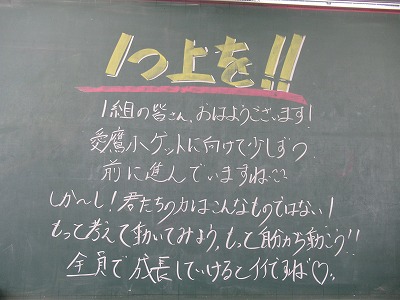 1つ上を!!
1組の皆さん、おはようございます!
愛鷹小ゲットに向けて少しずつ
前に進んでいますね
しか〜し!君たちの力はこんなものではない!
もっと考えて動いてみよう、もっと自分から動こう!!
全員で成長していけるとイイですね♡